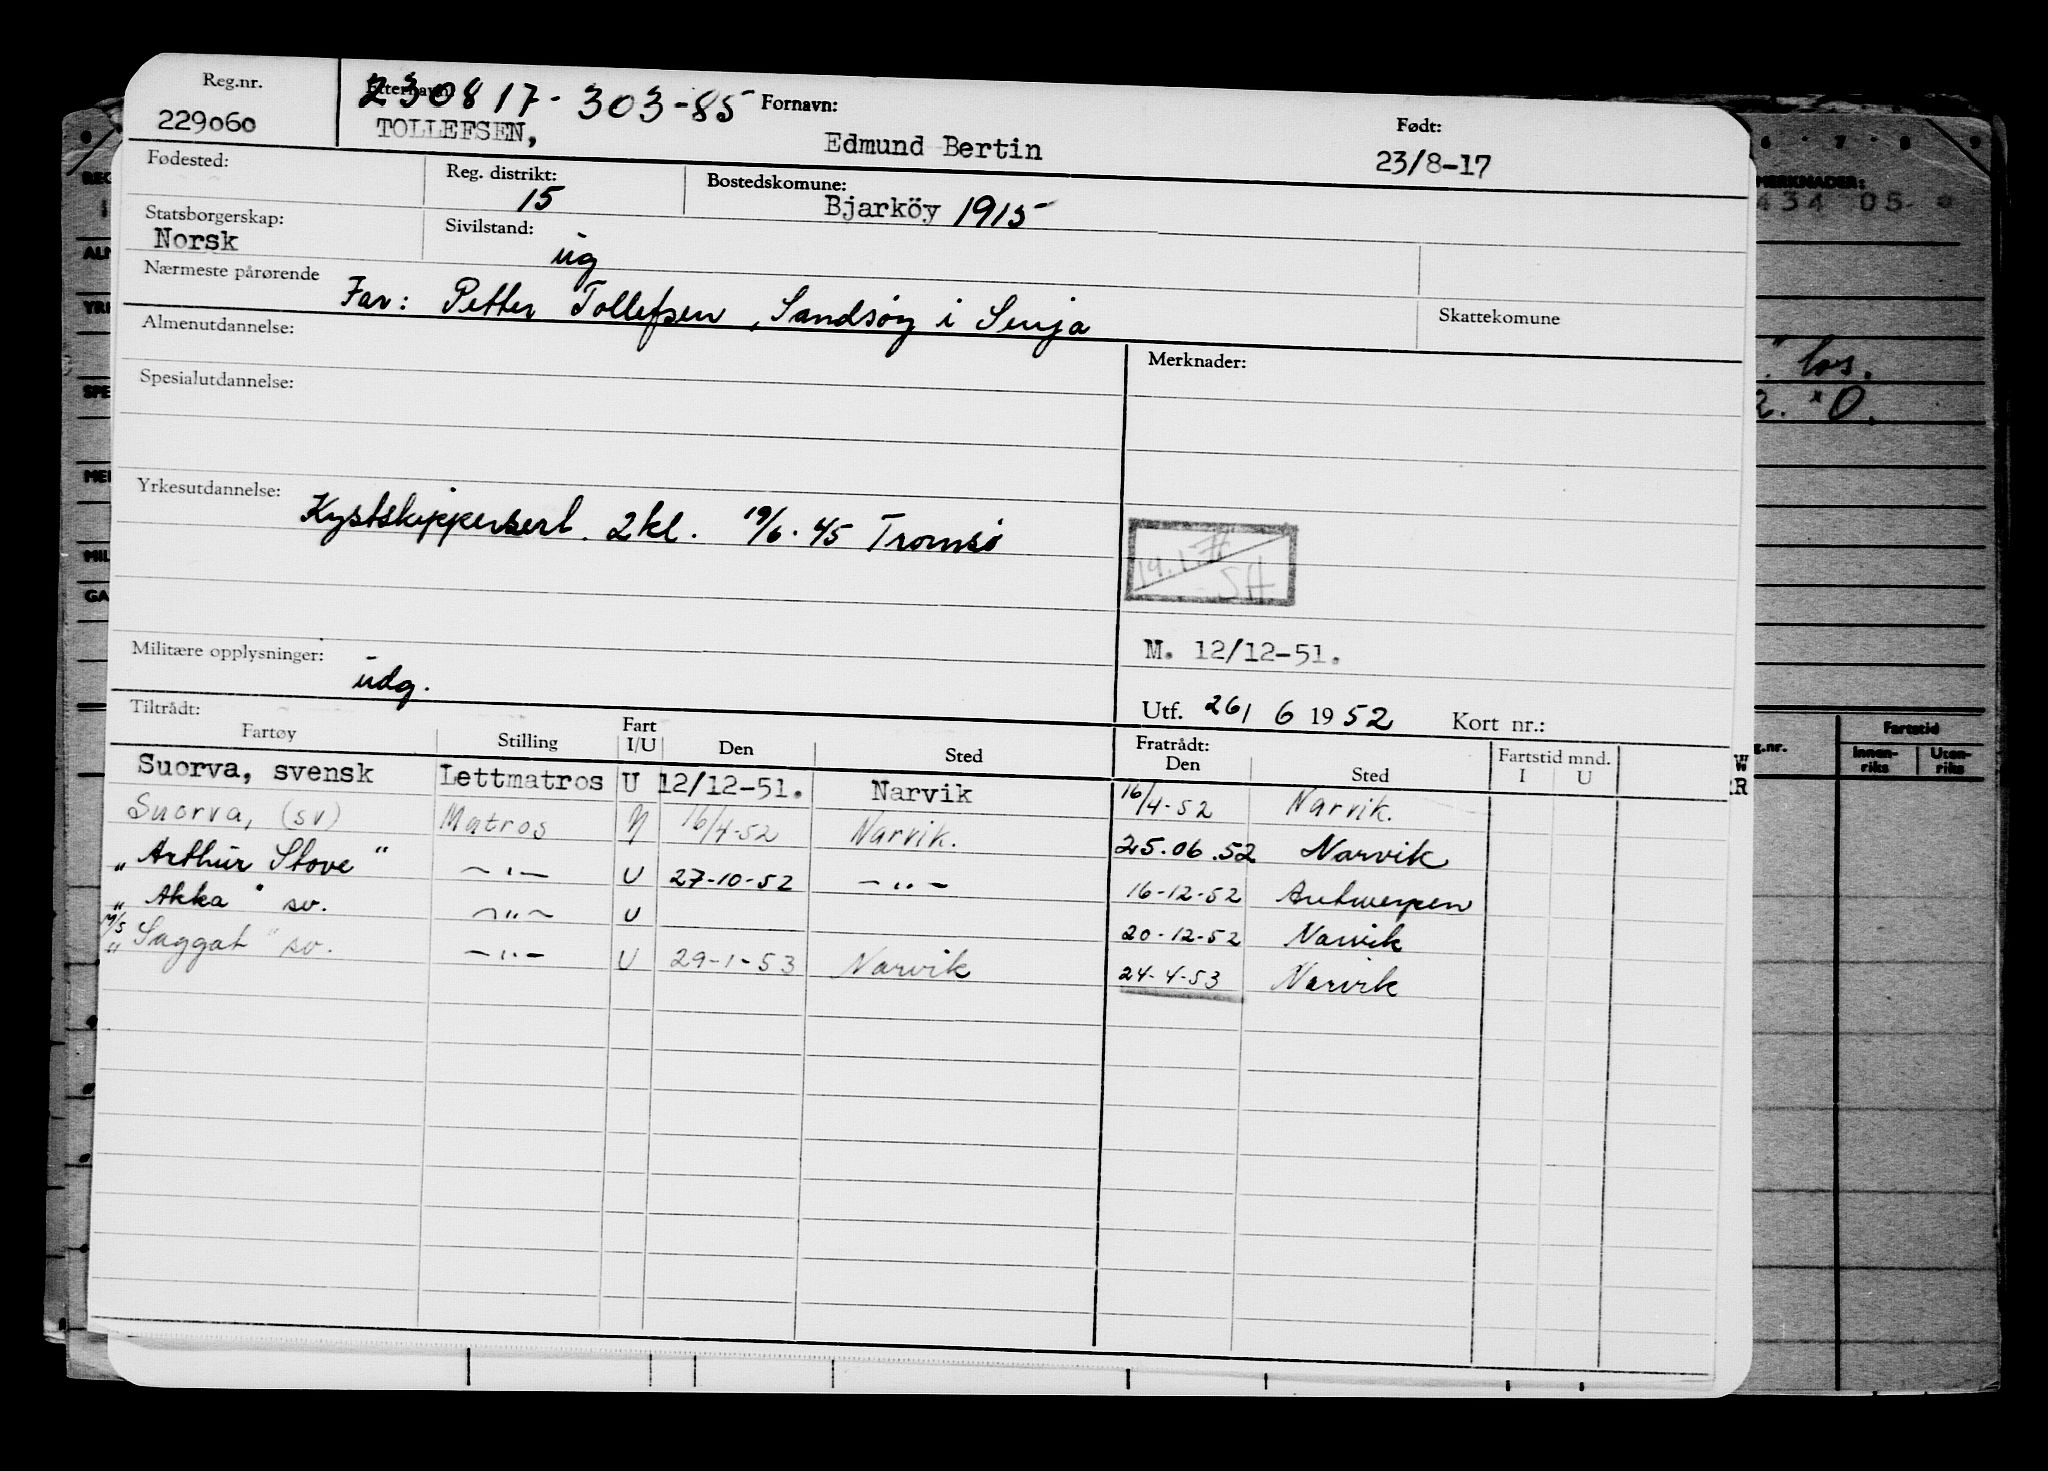 Reg.nr. Etternavn: 230817-303-85 Fornavn: Født:
229060 TOLLEFSEN, Edmund Bertin 23/8-17
Fødested: Reg. distrikt: 15 Bostedskomune: Bjarköy 1915
Statsborgerskap: Norsk Sivilstand: ug
Nærmeste pårørende Far: Petter Tollefsen, Sandsøy i Senja Skattekomune
Almenutdannelse: Merknader:
Spesialutdannelse:
Yrkesutdannelse: Kystskippersert. 2kl. 19/6.45 Tromsö
Militære opplysninger: udg. M. 12/12-51.
Utf. 26/ 6 1952 Kort nr.:
Tiltrådt: Fratrådt:
Fartøy Stilling Fart I/U Den Sted Den Sted Fartstid mnd. I U
Suorva, svensk Lettmatros U 12/12-51. Narvik 16/4-52 Narvik.
Suorva, (sv) Matros U 16/4-52 Narvik. 25.06.52 Narvik
"Arthur Stove" -"- U 27-10-52 -"- 16-12-52 Antwerpen
"Akka" sv. -"- U 20-12-52 Narvik
M/S "Saggat" sv. -"- U 29-1-53 Narvik 24-4-53 Narvik
MERKNADER:
434 05
los.
2. "O.
Fartstid
Innen-riks Uten-riks